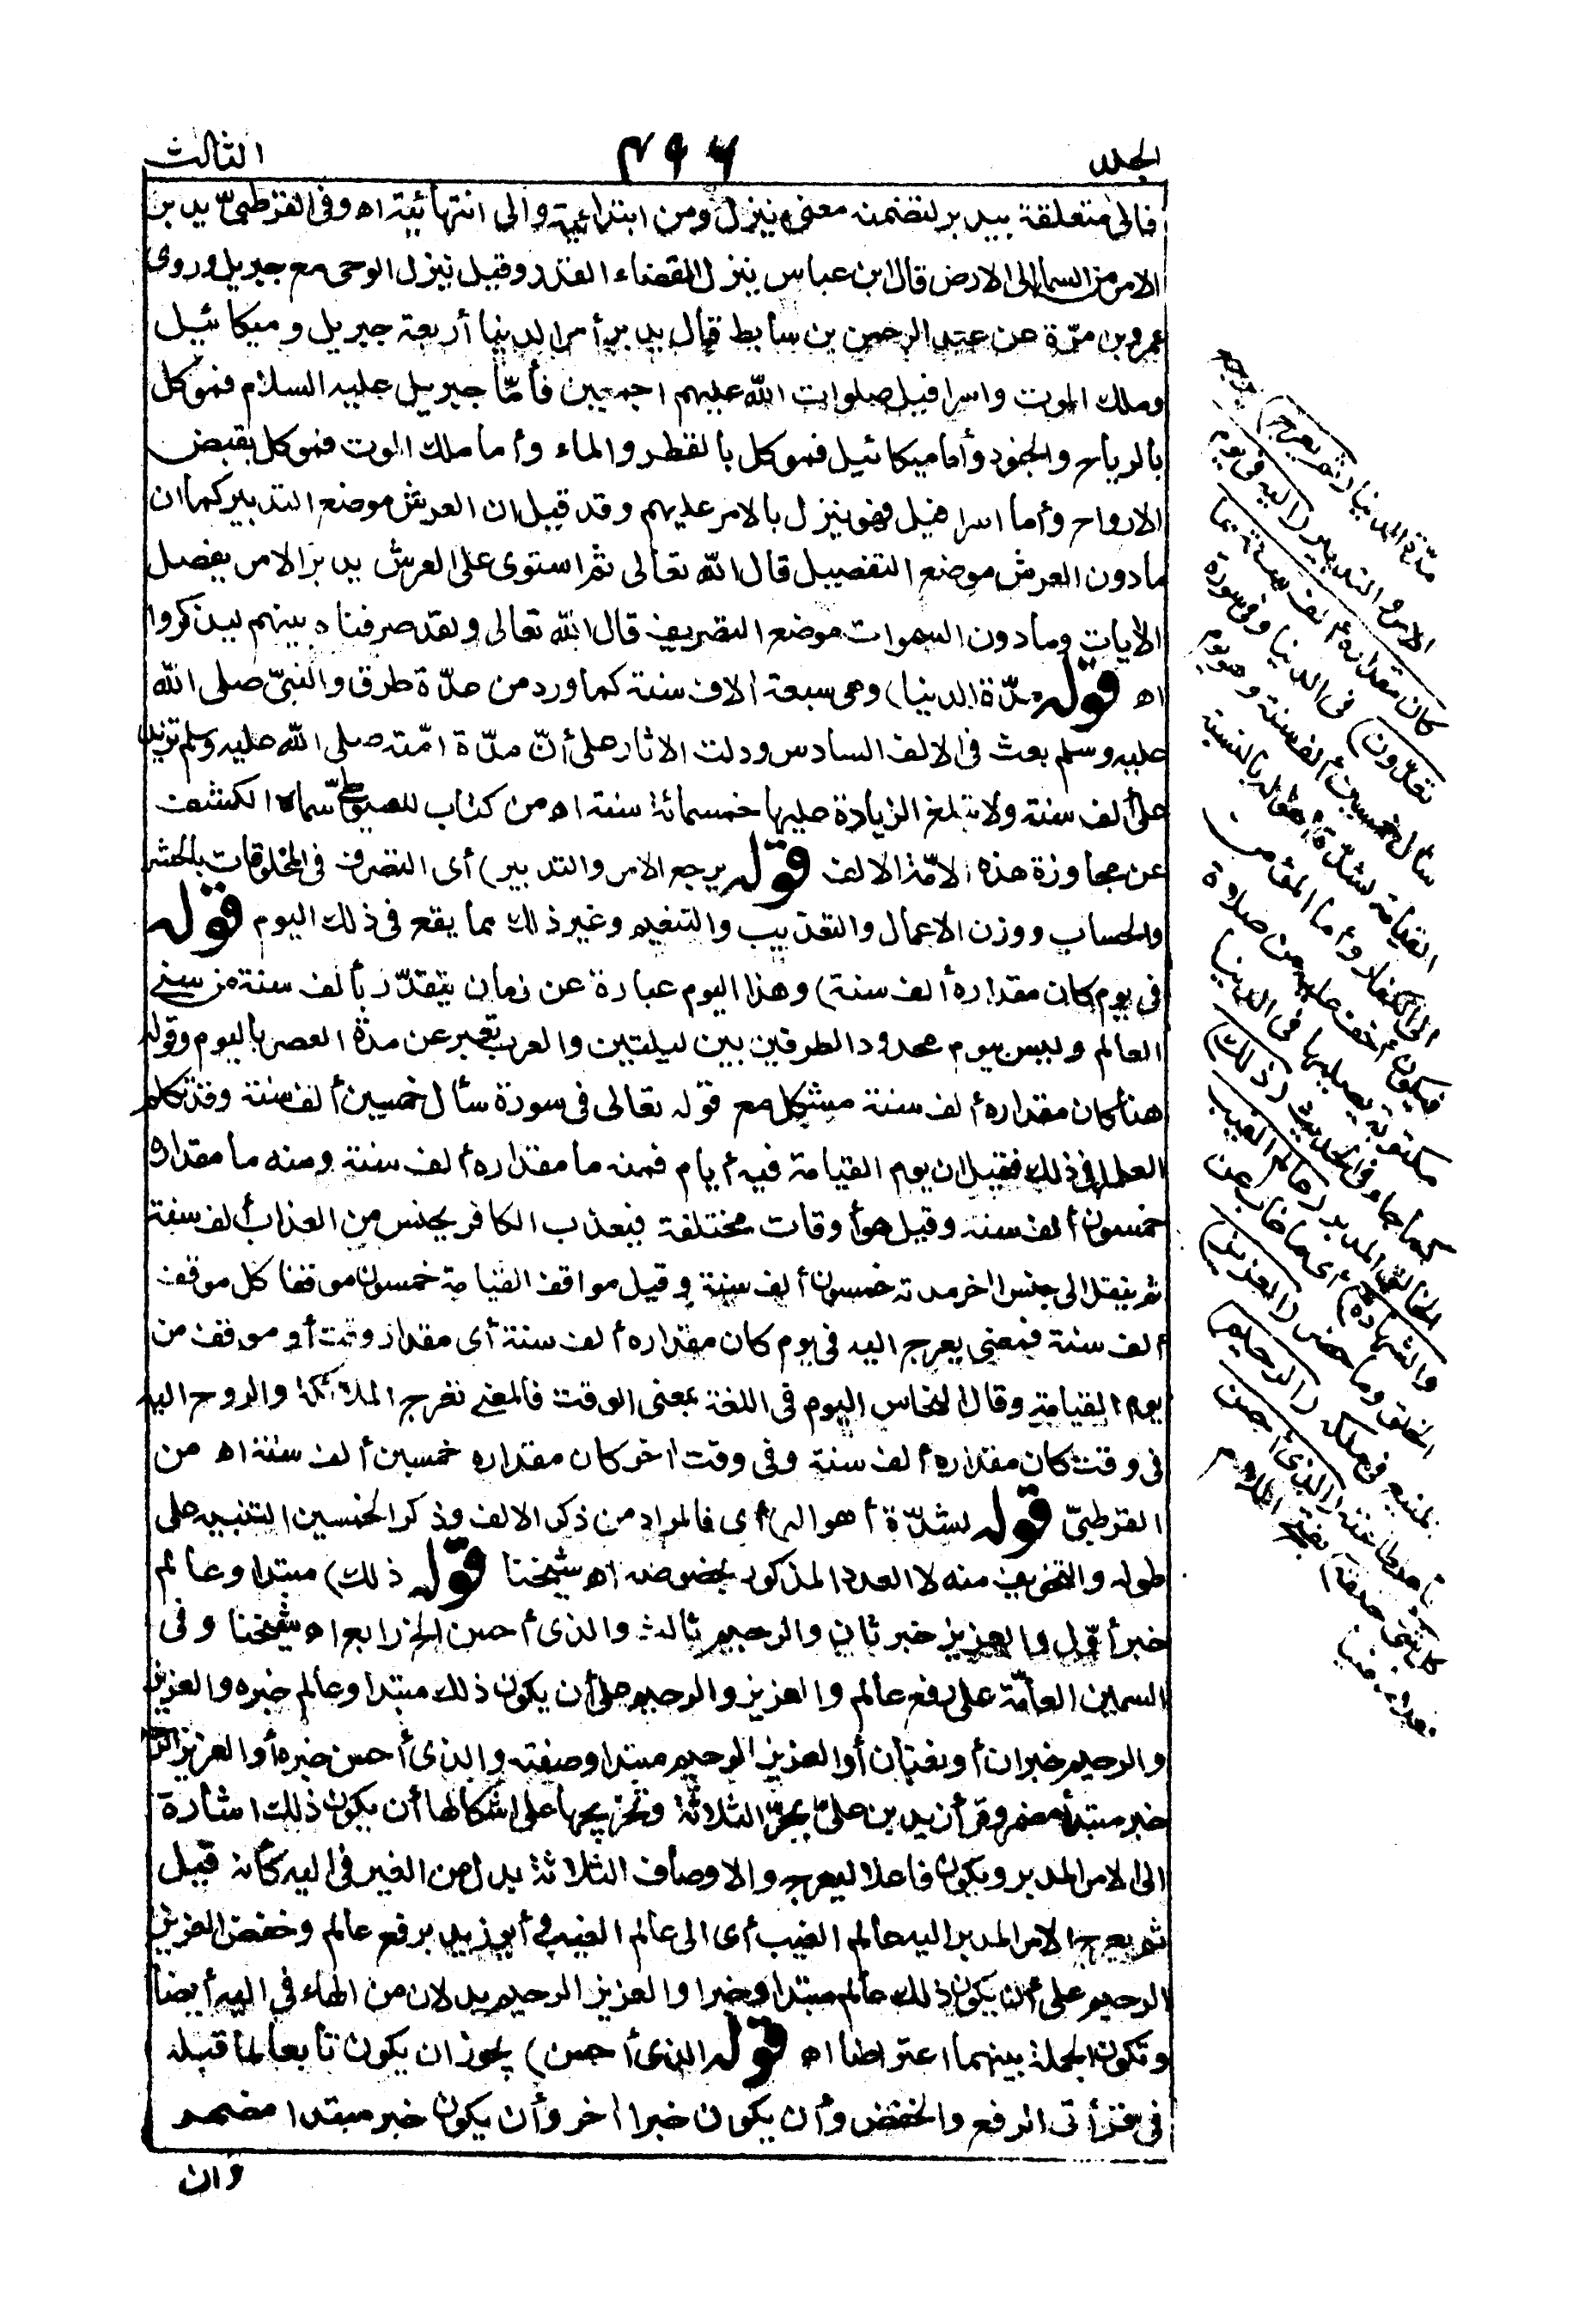 الجلد ٤٩٦ الثالث
فالى متعلقة بيدبر لتضمنه معنى ينزل ومن ابتدائية والى انتهائية اه وفى القرطبىّ يدبر
الامر من السماء الى الارض قال ابن عباس ينزل القضاء والقدر وقيل ينزل الوحى مع جبريل وروى
عمرو بن مرّة عن عبد الرحمن بن سابط قال يدبر أمر الدنيا أربعة جبريل وميكائيل
وملك الموت واسرافيل صلوات الله عليهم اجمعين فأمّا جبريل عليه السلام فموكل
بالرياح والجنود وأما ميكائيل فموكل بالقطر والماء وأما ملك الموت فموكل بقبض
الارواح وأما اسرافيل فهو ينزل بالامر عليهم وقد قيل ان العرش موضع التدبير كما ان
مادون العرش موضع التفصيل قال الله تعالى ثم استوى على العرش يدبر الامر يفصل
الايات ومادون السموات موضع التصريف قال الله تعالى ولقد صرفناه بينهم ليذكروا
اه قوله مدّة الدنيا) وهى سبعة آلاف سنة كما ورد من عدّة طرق والنبىّ صلى الله
عليه وسلم بعث فى الالف السادس ودلت الاثار على أنّ مدّة امّته صلى الله عليه وسلم تزيد
على ألف سنة ولا تبلغ الزيادة عليها خمسمائة سنة اه من كتاب للسيوطىّ سماه الكشف
عن مجاوزة هذه الامّة الالف قوله يرجع الامر والتدبير) أى التصرف فى المخلوقات بالحشر
والحساب ووزن الاعمال والتعذيب والتنعيم وغير ذلك مما يقع فى ذلك اليوم قوله
فى يوم كان مقداره ألف سنة) وهذا اليوم عبارة عن زمان يتقدّر بألف سنة من سنى
العالم وليس بيوم محدود الطرفين بين ليلتين والعرب تعبر عن مدّة العصر باليوم وقوله
هنا كان مقداره ألف سنة مشكل مع قوله تعالى فى سورة سأل خمسين ألف سنة وقد تكلم
العلماء فى ذلك فقيل ان يوم القيامة فيه أيام فمنه ما مقداره ألف سنة ومنه ما مقداره
خمسون ألف سنة وقيل هو أوقات مختلفة فيعذب الكافر بجنس من العذاب ألف سنة
ثم ينقل الى جنس اخر مدته خمسون ألف سنة وقيل مواقف القيامة خمسون موقفا كل موقف
ألف سنة فمعنى يعرج اليه فى يوم كان مقداره ألف سنة أى مقدار وقت أو موقف من
يوم القيامة وقال النحاس اليوم فى اللغة بمعنى الوقت فالمعنى تعرج الملائكة والروح اليه
فى وقت كان مقداره ألف سنة وفى وقت اخر كان مقداره خمسين ألف سنة اه من
القرطبىّ قوله لشدّة أهواله) أى فالمراد من ذكر الالف وذكر الخمسين التنبيه على
طوله والتخويف منه لا العدد المذكور بخصوصه اه شيخنا قوله ذلك) مبتدا وعالم
خبر أوّل والعزيز خبر ثان والرحيم ثالث والذى أحسن الخ رابع اه شيخنا وفى
السمين العامّة على رفع عالم والعزيز والرحيم على أن يكون ذلك مبتدا وعالم خبره والعزيز
والرحيم خبران أو نعتان أو العزيز الرحيم مبتدا وصفته والذى أحسن خبره أو العزيز الرحيم
خبر مبتدأ مضمر وقرأ زيد بن علىّ بجرّ الثلاثة وتخريجها على اشكالها أن يكون ذلك اشارة
الى الامر المدبر ويكون فاعلا ليعرج والاوصاف الثلاثة بدل من الضمير فى اليه كأنه قيل
ثم يعرج الامر المدبر اليه عالم الغيب أى الى عالم الغيب وأبو زيد برفع عالم وخفض العزيز
الرحيم على أن يكون ذلك عالم مبتدا وخبرا والعزيز الرحيم بدلان من الهاء فى اليه أيضا
وتكون الجملة بينهما اعتراضا اه قوله الذى أحسن) يجوز ان يكون تابعا لما قبله
فى قرأتى الرفع والخفض وأن يكون خبرا آخر وأن يكون خبر مبتدا مضمر
وان
مدّة الدنيا (ثم يعرج) يرجع
الامر والتدبير (اليه فى يوم
كان مقداره ألف سنة مما
تعدّون) فى الدنيا وفى سورة
سأل خمسين ألف سنة وهو يوم
القيامة لشدّة أهواله بالنسبة
الى الكفار وأما المؤمن
فيكون أخف عليه من صلاة
مكتوبة يصليها فى الدنيا
كما جاء فى الحديث (ذلك)
الخالق المدبر (عالم الغيب
والشهادة) أى ما غاب عن
الخلق وما حضر (العزيز)
المنيع فى ملكه (الرحيم)
بأهل طاعته (الذى أحسن
كل شئ خلقه) بفتح اللام
فعلا ماضيا